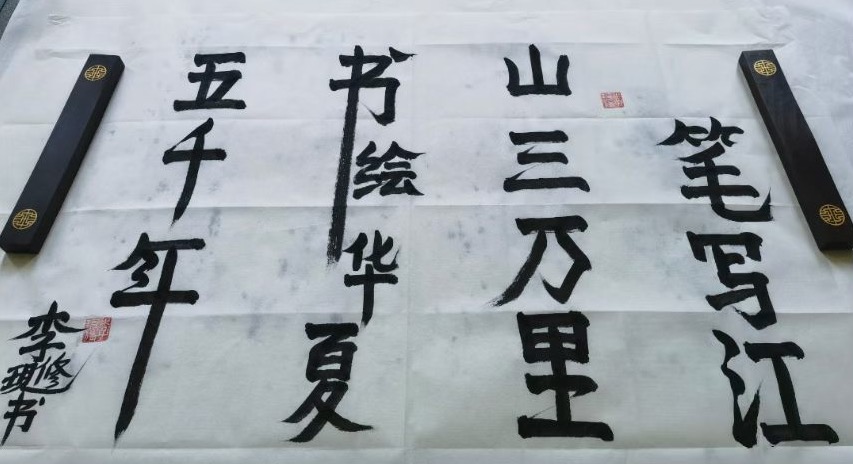 笔写江
山三乃里
书绘华夏
五千年
李修书